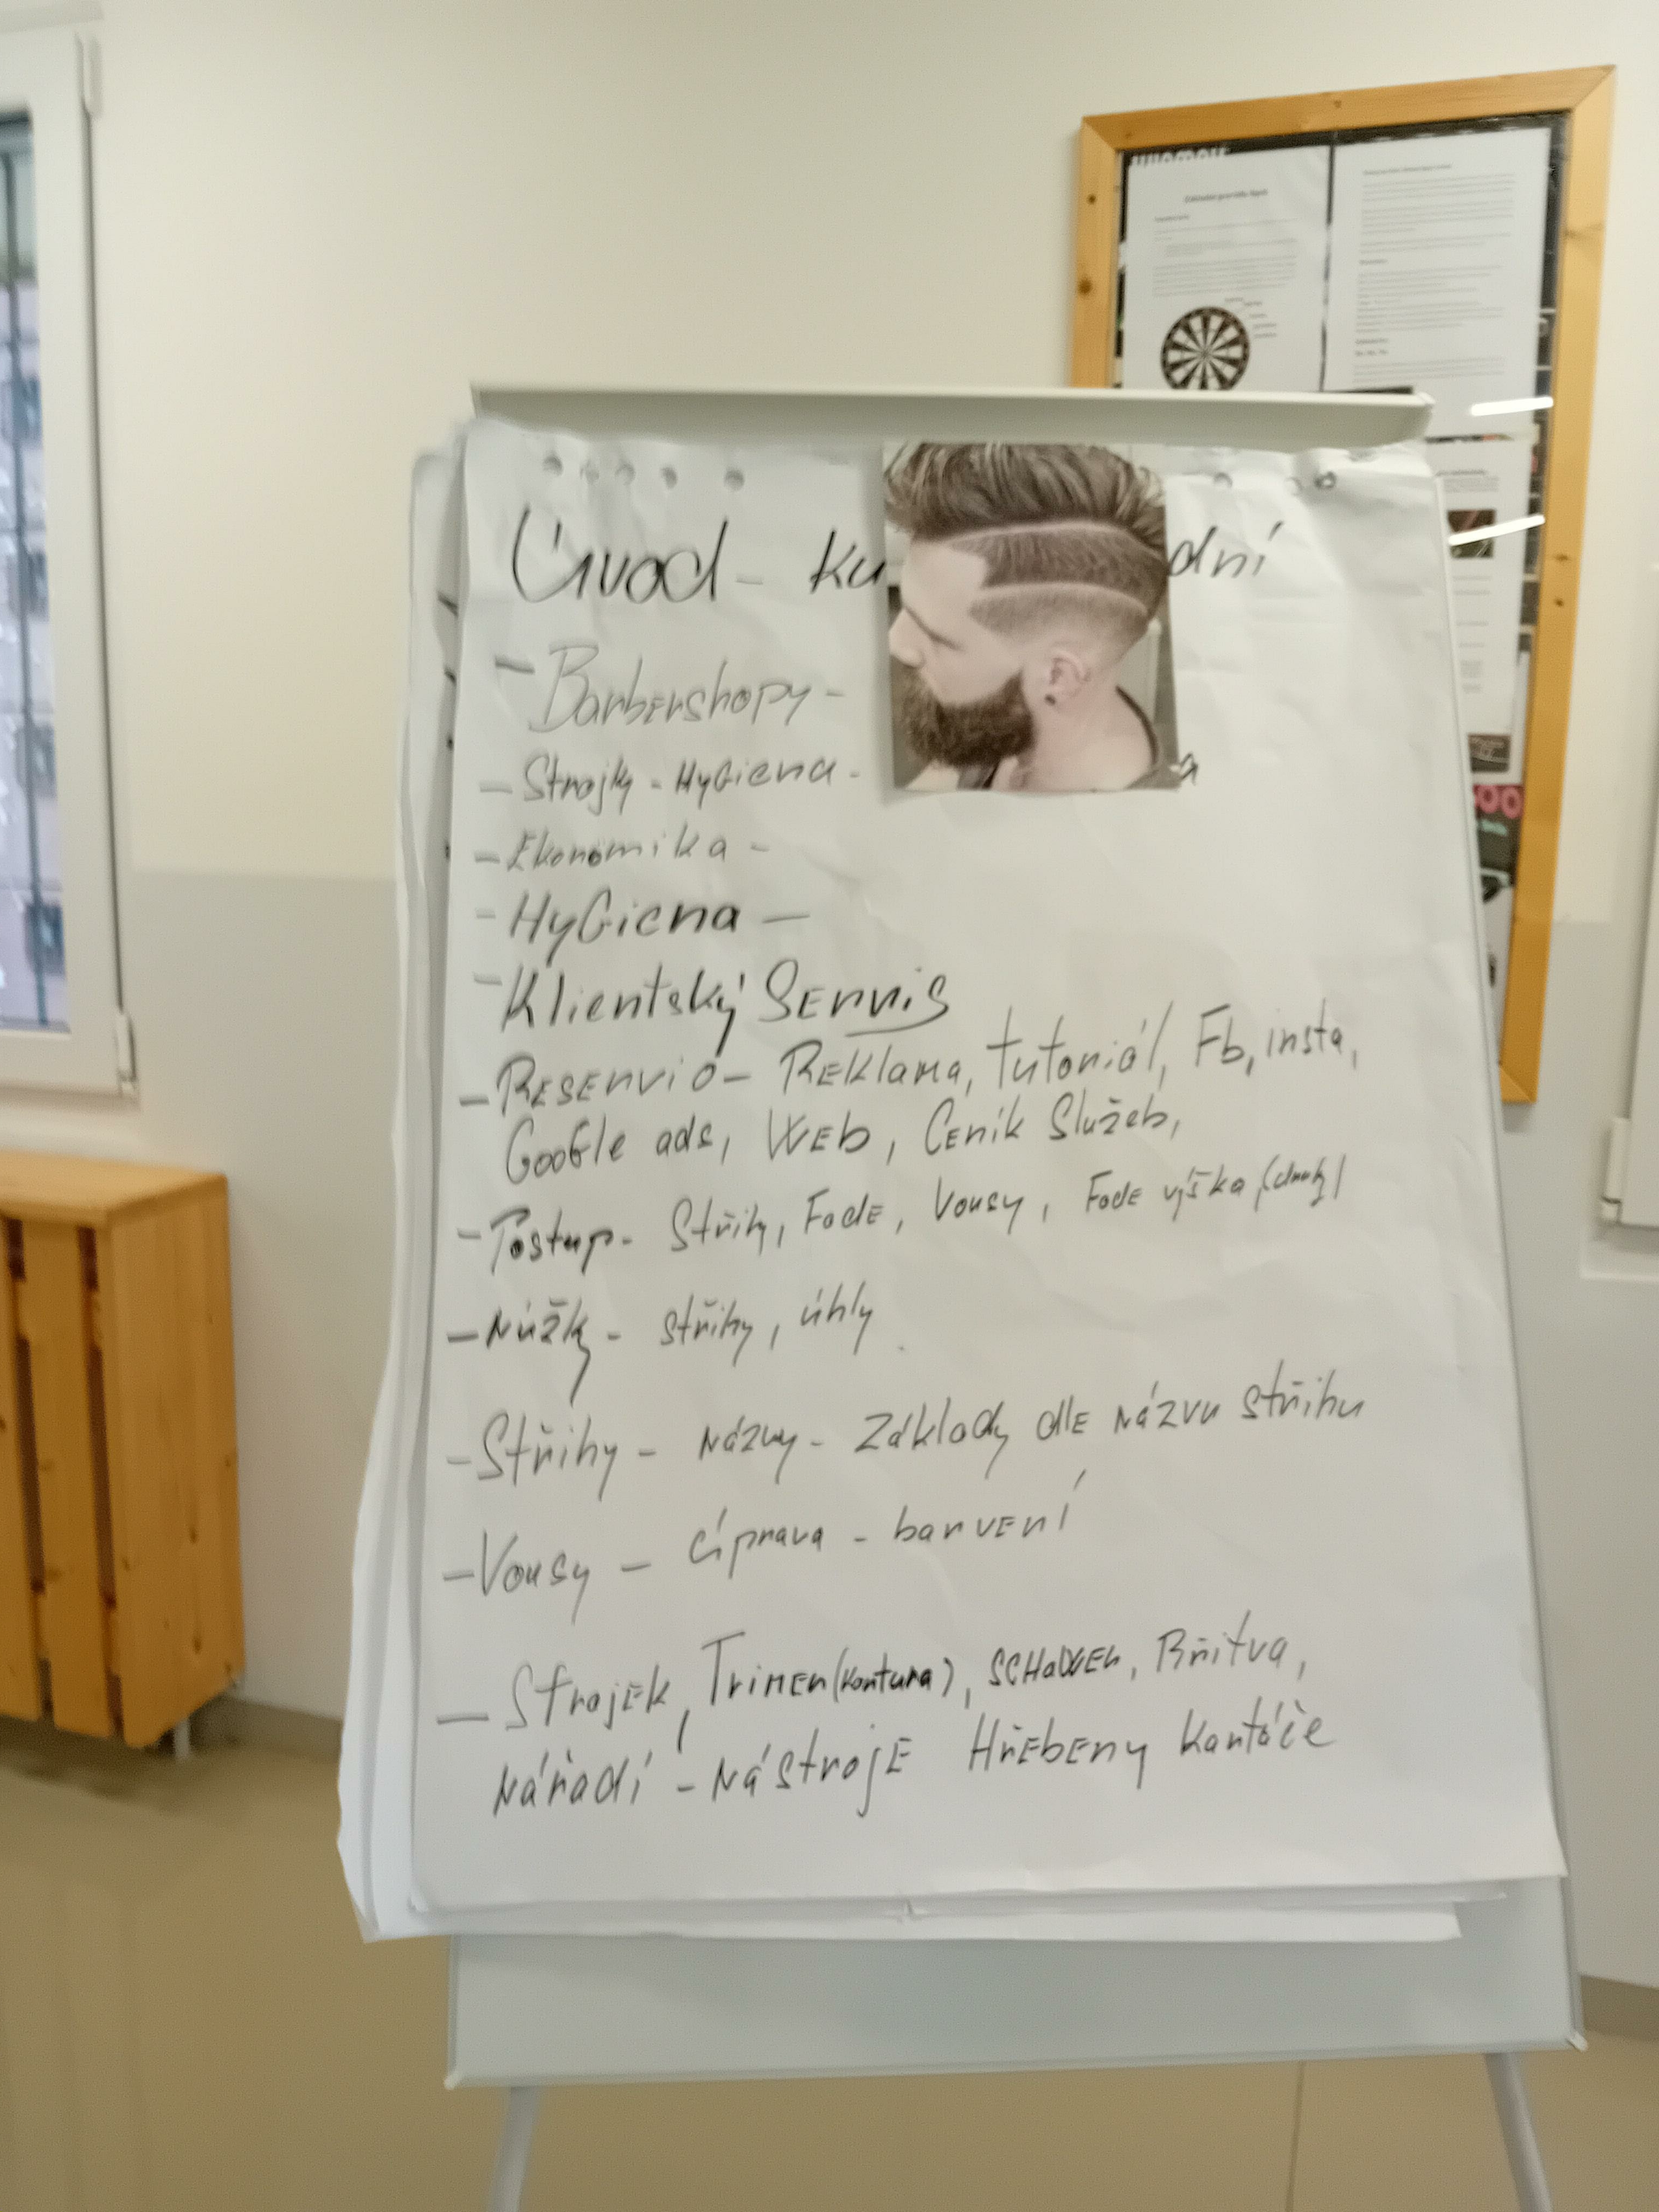 Úvod - ku dní
- Barbershopy -
- Strojky - Hygiena - a
- Ekonomika -
- Hygiena -
- Klientský Servis
- Reservio - Reklama, tutoriál, Fb, insta,
Google ads, Web, Ceník Služeb,
- Postup - Střihy, Fade, Vousy, Fade výška
- Núžky - střihy, úhly
- Střihy - názvy - Základy dle názvu střihu
- Vousy - úprava - barvení
- Strojek, Trimer (kontura), SCHaWER, Břitva,
Nářadí - Nástroje Hřebeny Kartáče